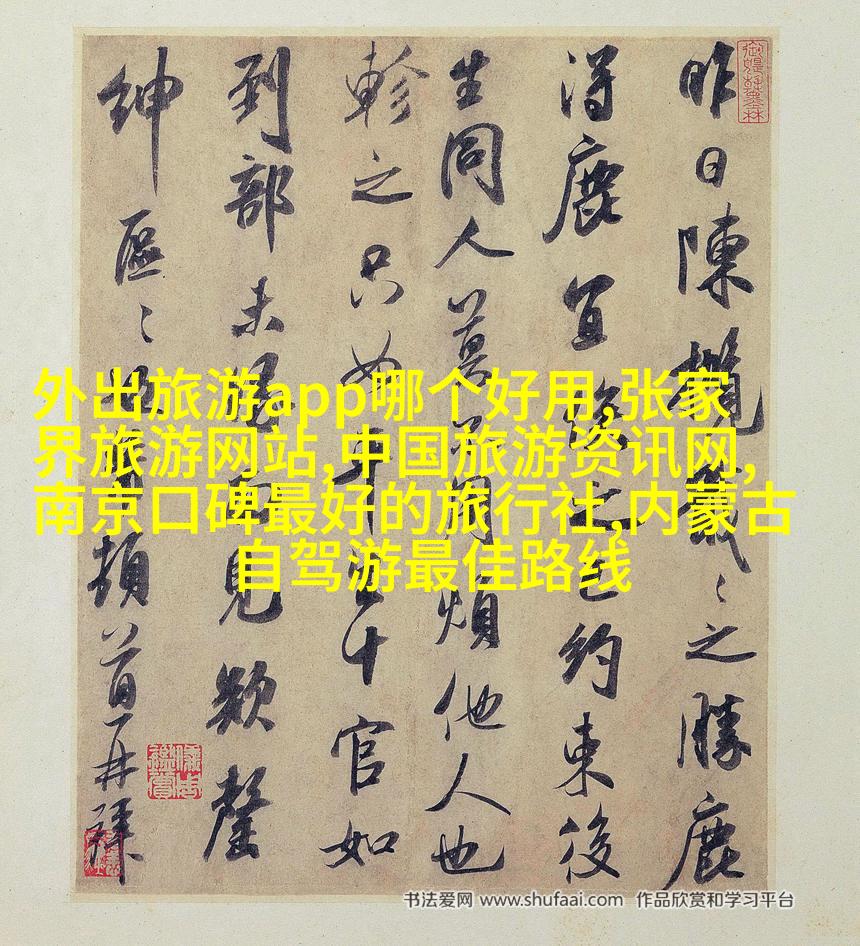 昨日陳攬戢〻之勝鹿
得鹿宜約束後
生同人莫用煩他人也
軫之只如十官如
到部未面見
紳區〻頓首再拜
外出旅游app哪个好用,张家
界旅游网站,中国旅游资讯网,
南京口碑最好的旅行社,内蒙古
自驾游最佳路线
书法爱网 www.shufaai.com 作品欣赏和学习平台